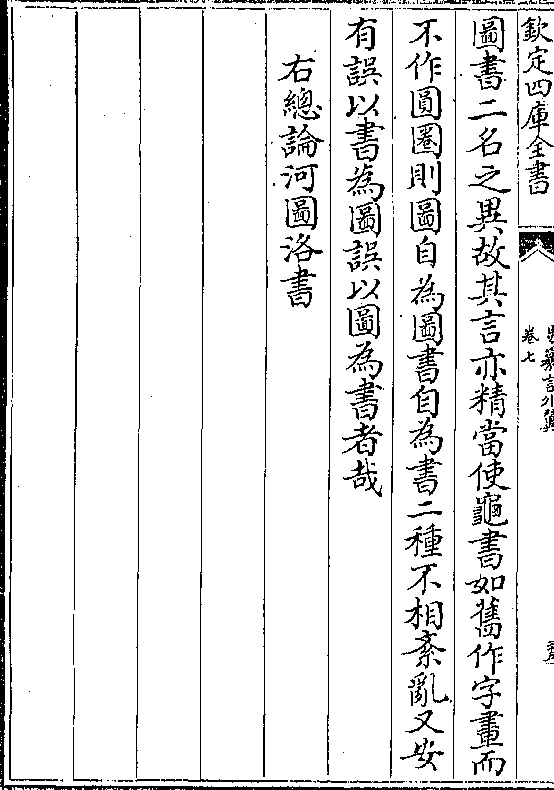 欽定四庫全書
卷七
圖書二名之異故其言亦精當使龜書如舊作字畫而
不作圓圈則圖自為圖書自為書二種不相紊亂又安
有誤以書為圖誤以圖為書者哉
右總論河圖洛書